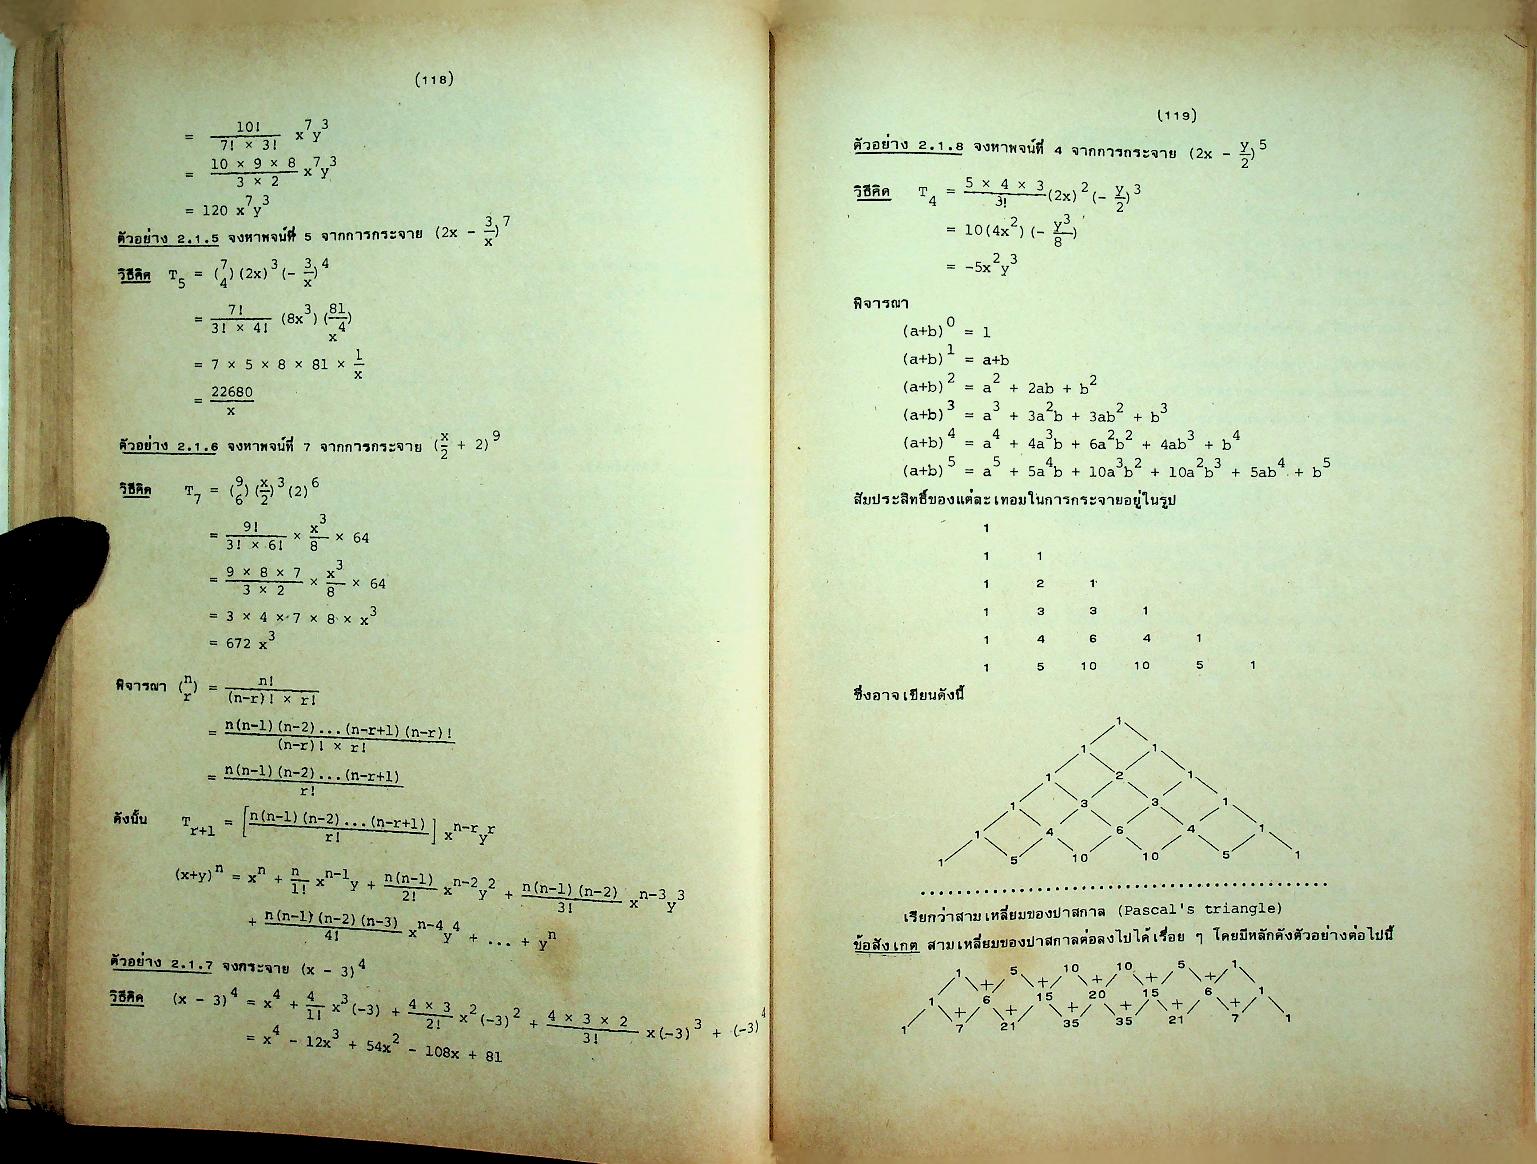 (118)
= 10! / 7! × 3! x⁷y³
= 10 × 9 × 8 / 3 × 2 x⁷y³
= 120 x⁷y³
ตัวอย่าง 2.1.5 จงหาพจน์ที่ 5 จากการกระจาย (2x - 3/x)⁷
วิธีคิด T₅ = (7 4) (2x)³ (- 3/x)⁴
= 7! / 3! × 4! (8x³) (81/x⁴)
= 7 × 5 × 8 × 81 × 1/x
= 22680/x
ตัวอย่าง 2.1.6 จงหาพจน์ที่ 7 จากการกระจาย (x/2 + 2)⁹
วิธีคิด T₇ = (9 6) (x/2)³ (2)⁶
= 9! / 3! × 6! × x³/8 × 64
= 9 × 8 × 7 / 3 × 2 × x³/8 × 64
= 3 × 4 × 7 × 8 × x³
= 672 x³
พิจารณา (n r) = n! / (n-r)! × r!
= n(n-1)(n-2)...(n-r+1)(n-r)! / (n-r)! × r!
= n(n-1)(n-2)...(n-r+1) / r!
ดังนั้น Tᵣ₊₁ = [n(n-1)(n-2)...(n-r+1) / r!] xⁿ⁻ʳyʳ
(x+y)ⁿ = xⁿ + n/1! xⁿ⁻¹y + n(n-1)/2! xⁿ⁻²y² + n(n-1)(n-2)/3! xⁿ⁻³y³
+ n(n-1)(n-2)(n-3)/4! xⁿ⁻⁴y⁴ + ... + yⁿ
ตัวอย่าง 2.1.7 จงกระจาย (x - 3)⁴
วิธีคิด (x - 3)⁴ = x⁴ + 4/1! x³(-3) + 4 × 3/2! x²(-3)² + 4 × 3 × 2/3! x(-3)³ + (-3)⁴
= x⁴ - 12x³ + 54x² - 108x + 81
(119)
ตัวอย่าง 2.1.8 จงหาพจน์ที่ 4 จากการกระจาย (2x - y/2)⁵
วิธีคิด T₄ = 5 × 4 × 3 / 3! (2x)² (- y/2)³
= 10(4x²) (- y³/8)
= -5x²y³
พิจารณา
(a+b)⁰ = 1
(a+b)¹ = a+b
(a+b)² = a² + 2ab + b²
(a+b)³ = a³ + 3a²b + 3ab² + b³
(a+b)⁴ = a⁴ + 4a³b + 6a²b² + 4ab³ + b⁴
(a+b)⁵ = a⁵ + 5a⁴b + 10a³b² + 10a²b³ + 5ab⁴ + b⁵
สัมประสิทธิ์ของแต่ละเทอมในการกระจายอยู่ในรูป
1
1 1
1 2 1
1 3 3 1
1 4 6 4 1
1 5 10 10 5 1
ซึ่งอาจเขียนดังนี้
1
1 1
1 2 1
1 3 3 1
1 4 6 4 1
1 5 10 10 5 1
..............................................
เรียกว่าสามเหลี่ยมของปาสกาล (Pascal's triangle)
ข้อสังเกต สามเหลี่ยมของปาสกาลต่อลงไปได้เรื่อย ๆ โดยมีหลักดังตัวอย่างต่อไปนี้
1 + 5 + 10 + 10 + 5 + 1
1 + 6 + 15 + 20 + 15 + 6 + 1
1 7 21 35 35 21 7 1